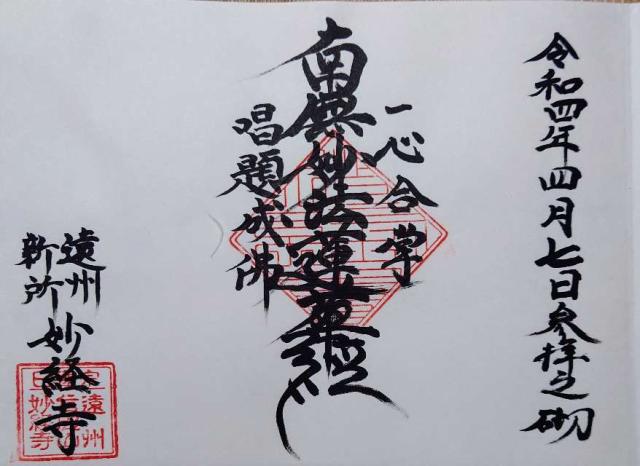 令和四年四月七日参拝之砌
一心合掌
南無妙法蓮華経
唱題成佛
遠州
新所
妙経寺